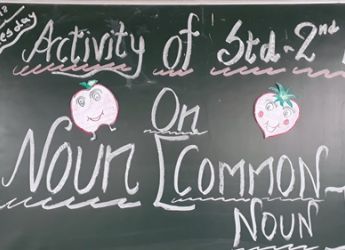 Activity of Std-2nd
On
Noun [Common
Noun